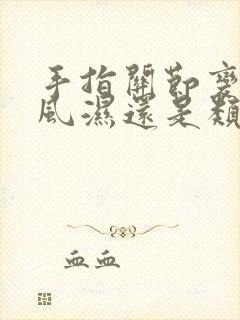 手指關節
風濕還是類
血血